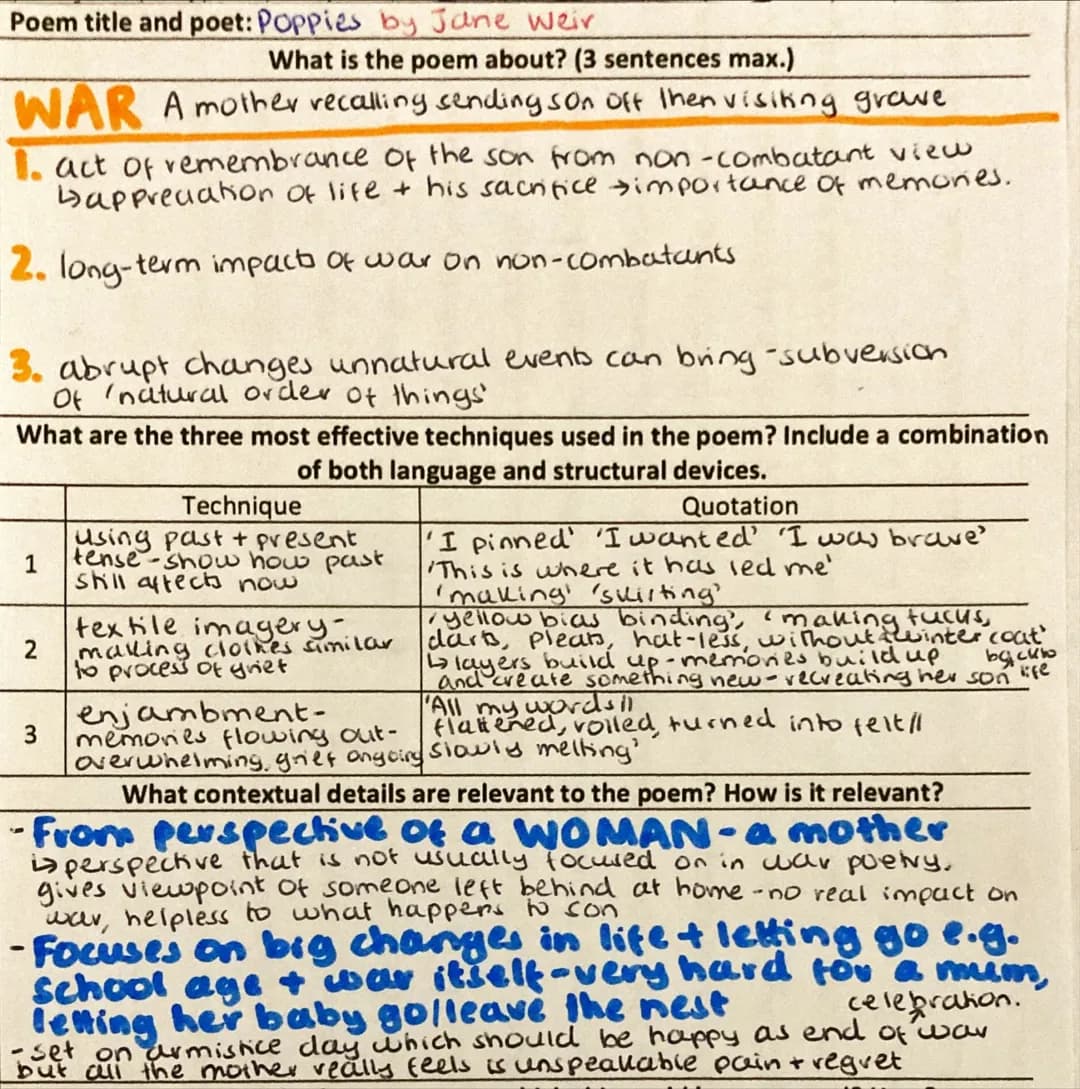 Poem title and poet: Poppies by Jane Weir
What is the poem about? (3 sentences max.)
WAR A mother recalling sending son off then visiting grave
1. act of remembrance of the son from non-combatant view
↳appreciation of life + his sacrifice →importance of memories.
2. long-term impacts of war on non-combatants
3. abrupt changes unnatural events can bring - subversion
of 'natural order of things'
What are the three most effective techniques used in the poem? Include a combination
of both language and structural devices.
Technique Quotation
1
using past + present
tense - show how past
still affects now
'I pinned' 'I wanted' 'I was brave'
'This is where it has led me'
'making' 'skirting'
2
textile imagery-
making clothes similar
to process of grief
'yellow bias binding', 'making tucks,
darts, pleats, hat-less, without a winter coat'
↳ layers build up - memories build up
and create something new - recreating her son back to life
3
enjambment-
memories flowing out-
overwhelming, grief ongoing
'All my words//
flattened, rolled, turned into felt//
slowly melting'
What contextual details are relevant to the poem? How is it relevant?
- From perspective of a WOMAN - a mother
↳ perspective that is not usually focused on in war poetry.
gives viewpoint of someone left behind at home - no real impact on
war, helpless to what happens to son
- Focuses on big changes in life + letting go e.g.
school age + war itself - very hard for a mum,
letting her baby go/leave the nest
celebration.
- set on armistice day which should be happy as end of war
but all the mother really feels is unspeakable pain + regret